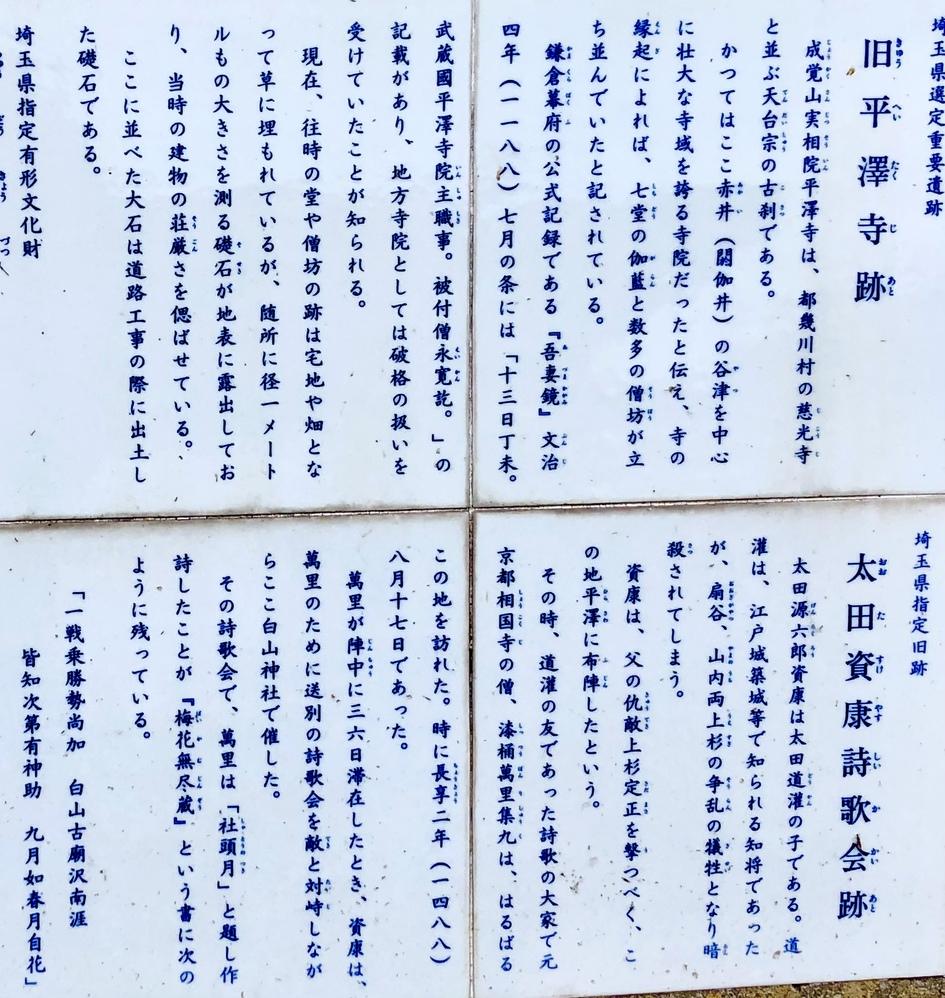 埼玉県選定重要遺跡
旧平澤寺跡
成覚山実相院平澤寺は、都幾川村の慈光寺
と並ぶ天台宗の古刹である。
かつてはここ赤井（閼伽井）の谷津を中心
に壮大な寺域を誇る寺院だったと伝え、寺の
縁起によれば、七堂の伽藍と数多の僧坊が立
ち並んでいたと記されている。
鎌倉幕府の公式記録である『吾妻鏡』文治
四年（一一八八）七月の条には「十三日丁未。
武蔵國平澤寺院主職事。被付僧永寛訖。」の
記載があり、地方寺院としては破格の扱いを
受けていたことが知られる。
現在、往時の堂や僧坊の跡は宅地や畑とな
って草に埋もれているが、随所に径一メート
ルもの大きさを測る礎石が地表に露出してお
り、当時の建物の荘厳さを偲ばせている。
ここに並べた大石は道路工事の際に出土し
た礎石である。
埼玉県指定有形文化財
埼玉県指定旧跡
太田資康詩歌会跡
太田源六郎資康は太田道灌の子である。道
灌は、江戸城築城等で知られる知将であった
が、扇谷、山内両上杉の争乱の犠牲となり暗
殺されてしまう。
資康は、父の仇敵上杉定正を撃つべく、こ
の地平澤に布陣したという。
その時、道灌の友であった詩歌の大家で元
京都相国寺の僧、漆桶萬里集九は、はるばる
この地を訪れた。時に長享二年（一四八八）
八月十七日であった。
萬里が陣中に三六日滞在したとき、資康は、
萬里のために送別の詩歌会を敵と対峙しなが
らここ白山神社で催した。
その詩歌会で、萬里は「社頭月」と題し作
詩したことが『梅花無尽蔵』という書に次の
ように残っている。
「一戦乗勝勢尚加　白山古廟沢南涯
皆知次第有神助　九月如春月自花」